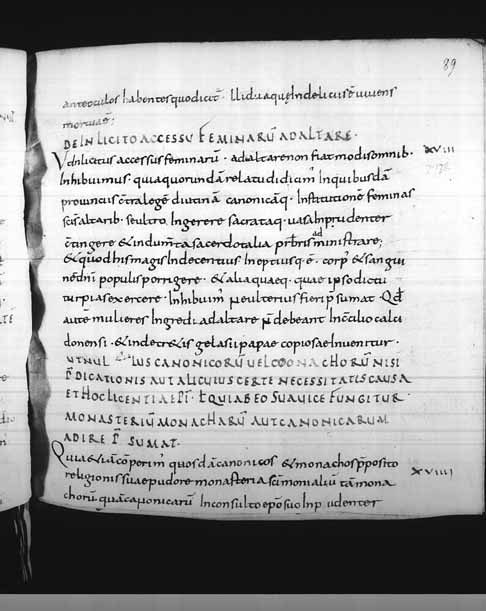 89
ante oculos habentes quod dicit. Illi d uaque In delicus ē uivens
mortuaē;
DE INLICITO ACCESSU FEMINARŪ AD ALTARE.
Ut Inlicitus accessus feminarū. ad altare non fiat modis omnib. XVIII
Inhibuimus. quia quorundā relatu didicim In quibusdā
provinciis c̄tra legē divinā canonicāq. Institutionē feminas
scīs altarib. se ultro Ingerere sacrataq. uasa Inprudenter
c̄tingere & indumta sacerdotalia prbīs ad ministrare;
& quod his magis Indecentius Ineptiusq. ē. corp & sanguī
nē dnī populis porrigere. & alia quaeq. quae ipso dictu
turpia s exercere. Inhibuim ne ulterius fieri p̄sumat. Qd
autē mulieres Ingredi ad altare n̄ debeant In c̄cilio calci
donensi. & in decr&is gelasii papae copiosae Inuenitur.
UT NULLUS CANONICORŪ UEL MONACHORŪ NISI
P̄DICATIONIS AUT ALICUIUS CERTE NECESSITATIS CAUSA
ET HOC LICENTIA EPI. QUI AB EO SUA UICE FUNGITUR
MONASTERIŪ MONACHARŪ AUT CANONICARUM
ADIRE P̄SUMAT.
Quia & iā c̄perim quosdā canonicos & monachos p̄posito XVIIII
religionis suae pudore monasteria scīmonialiū tā mona
charū quā canonicarū Inconsulto ep̄o suo Inp udenter